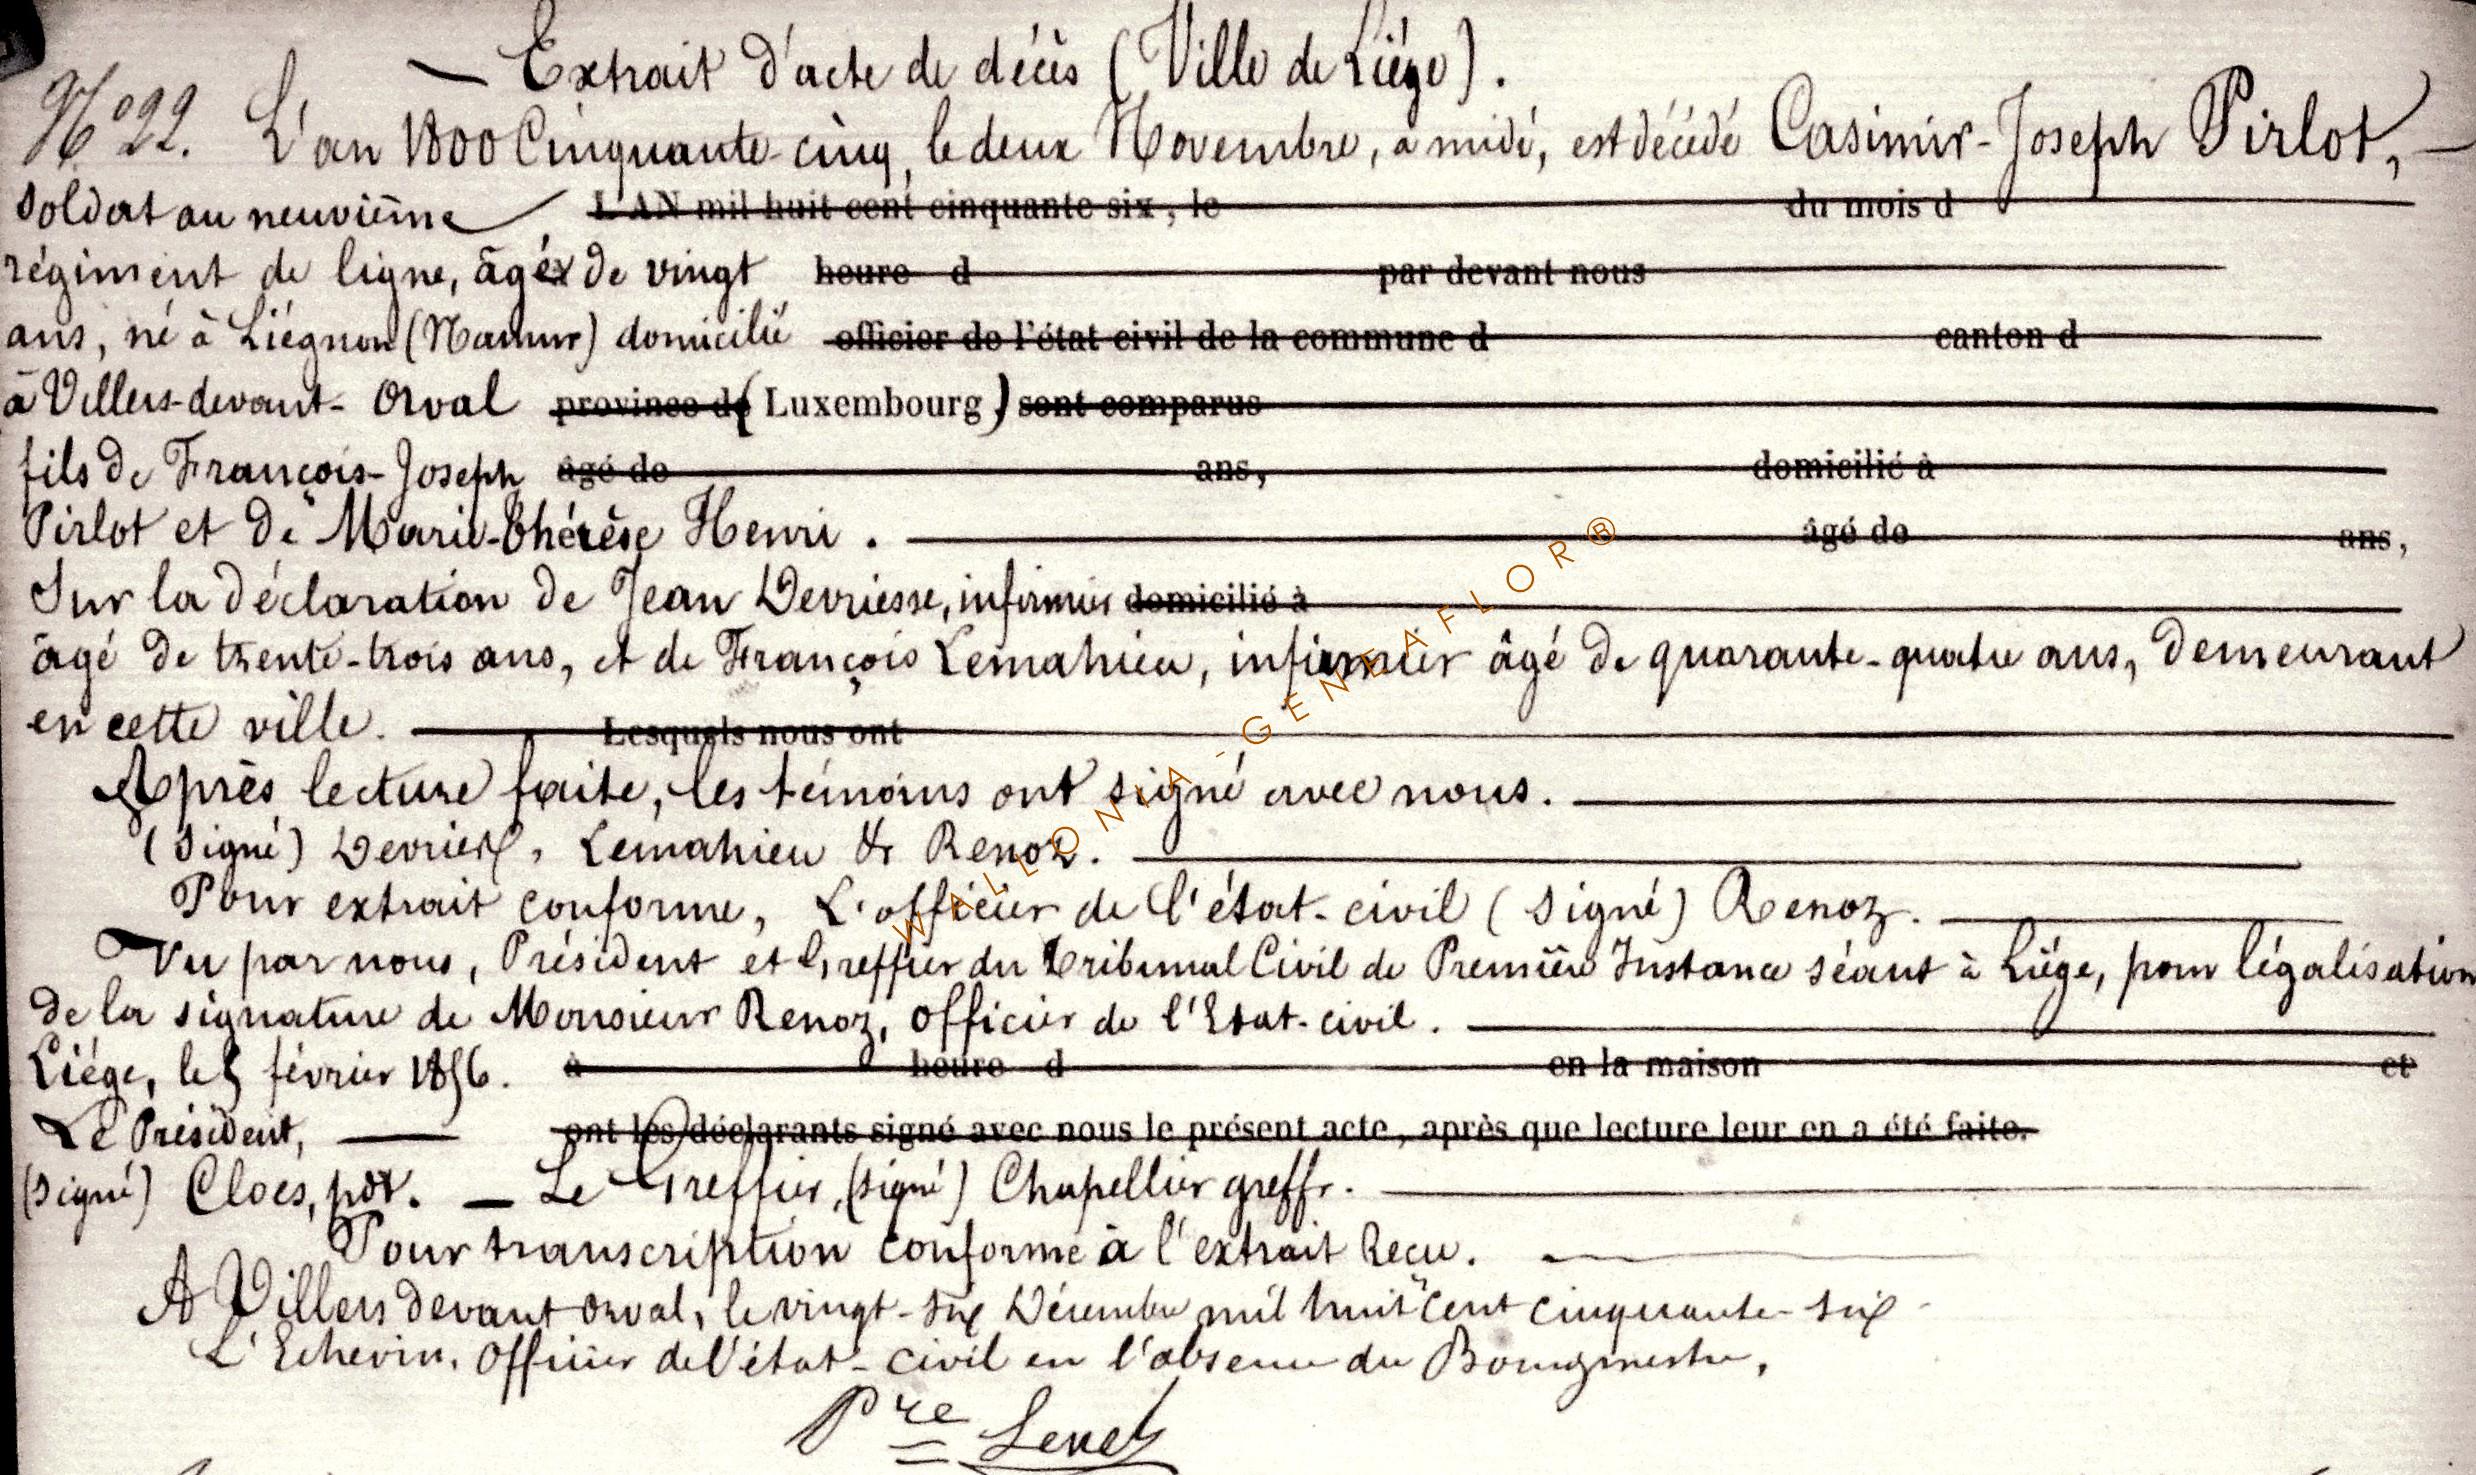 — Extrait d'acte de décès (Ville de Liége).
N° 22. L'an 1800 Cinquante-cinq, le deux Novembre, à midi, est décédé Casimir-Joseph Pirlot,
soldat au neuvième L'AN mil huit cent cinquante six, le du mois d
régiment de ligne, âgé de vingt heure d par devant nous
ans, né à Liégnon (Namur) domicilié officier de l'état civil de la commune d canton d
à Villers-devant-Orval province de (Luxembourg) sont comparus
fils de François-Joseph âgé de ans, domicilié à
Pirlot et de Marie-Thérèse Henri. âgé de ans,
Sur la déclaration de Jean Devriesse, infirmier domicilié à
âgé de trente-trois ans, et de François Lemahieu, infirmier âgé de quarante-quatre ans, demeurant
en cette ville. Lesquels nous ont
Après lecture faite, les témoins ont signé avec nous.
(Signé) Lemahieu & Renoz.
Pour extrait conforme, L'officier de l'état-civil (signé) Renoz.
Vu par nous, Président et Greffier du Tribunal Civil de Première Instance séant à Liége, pour légalisation
de la signature de Monsieur Renoz, officier de l'Etat-civil.
Liége, le 5 février 1856. à heure d en la maison et
Le Président, ont les déclarants signé avec nous le présent acte, après que lecture leur en a été faite.
(signé) Cloes, pdt. — Le Greffier, (signé) Chapellier greffr.
Pour transcription conforme à l'extrait Recu.
A Villers devant Orval, le vingt-six Décembre mil huit cent cinquante-six
L'Echevin, Officier de l'état-civil en l'absence du Bourgmestre,
Pre
WALLONIA - GENEAFLOR®